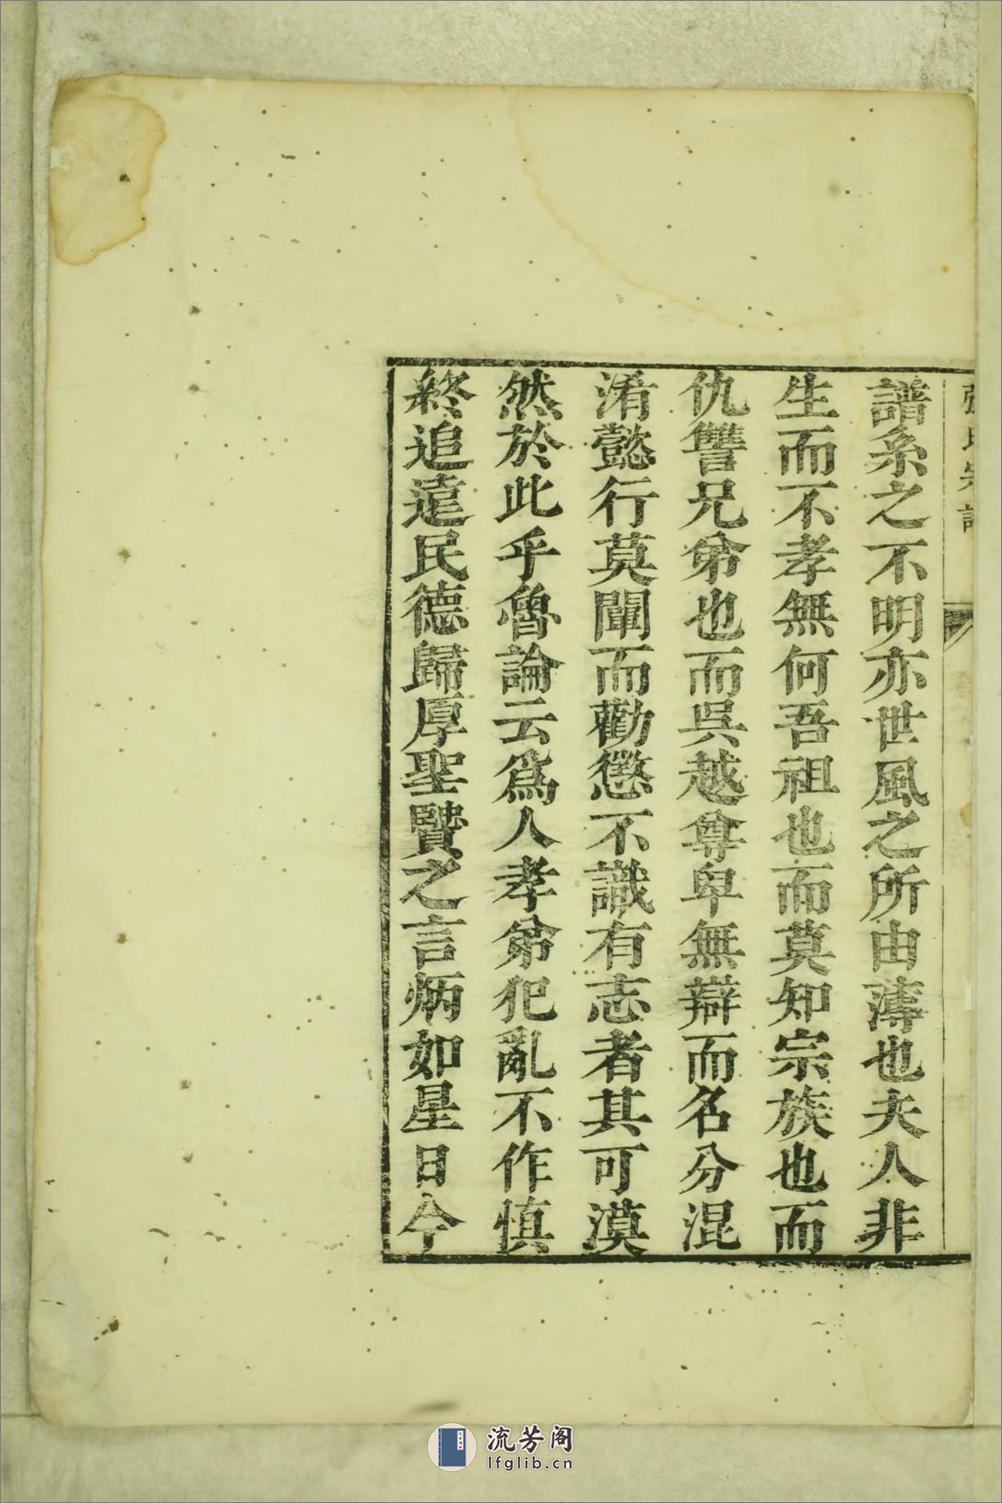 張氏宗譜
譜系之不明亦世風之所由薄也夫人非
生而不孝無何吾祖也而莫知宗族也而
仇讐兄弟也而吳越尊卑無辯而名分混
淆懿行莫闡而勸懲不識有志者其可漠
然於此乎魯論云爲人孝弟犯亂不作慎
終追遠民德歸厚聖賢之言炳如星日今
流芳阁
lfglib.cn